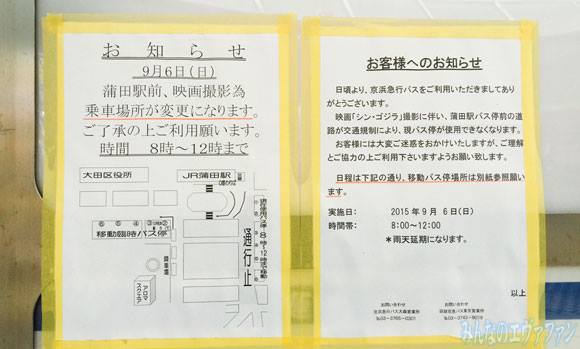 お知らせ
9月6日(日)
蒲田駅前、映画撮影為
乗車場所が変更になります。
ご了承の上ご利用願います。
時間 8時~12時まで
大田区役所
JR蒲田駅
移動臨時バス停
通行止
アロマスクエア
お客様へのお知らせ
日頃より、京浜急行バスをご利用いただきましてあり
がとうございます。
映画「シン・ゴジラ」撮影に伴い、蒲田駅バス停前の道
路が交通規制により、現バス停が使用できなくなります。
お客様には大変ご迷惑をおかけいたしますが、ご理解
とご協力の上ご利用下さいますようお願い致します。
日程は下記の通り、移動バス停場所は別紙参照願い
ます。
実施日: 2015年9月 6日(日)
時間帯: 8:00~12:00
*雨天延期になります。
以上
お問い合わせ
お問い合わせ
みんなのエヴァファン